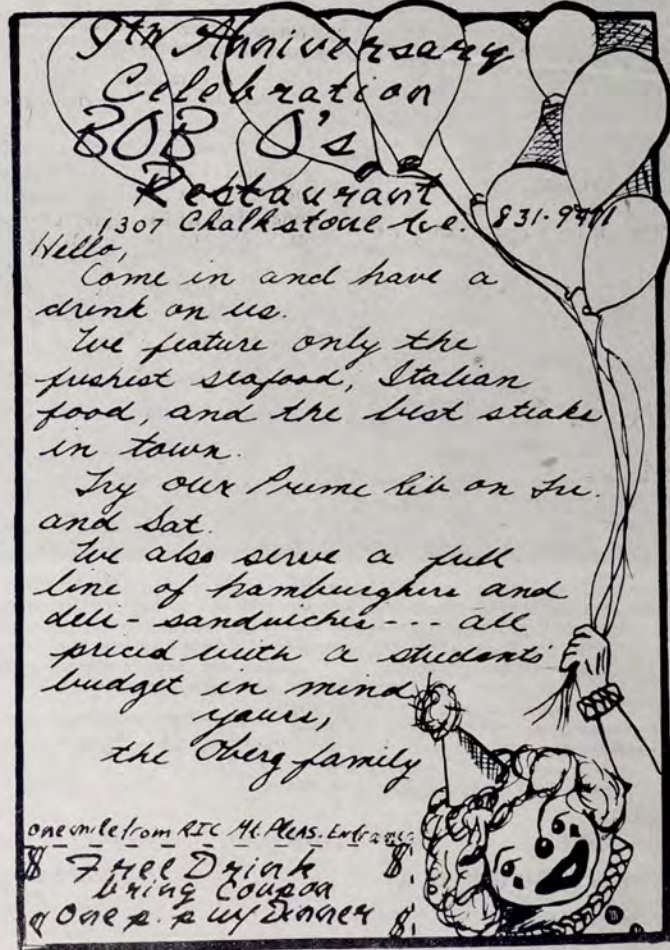 9th Anniversary
Celebration
BOB O's
Restaurant
1307 Chalkstone Ave. 831-9411
Hello,
Come in and have a
drink on us.
We feature only the
freshest seafood, Italian
food, and the best steaks
in town.
Try our Prime Rib on Fri.
and Sat.
We also serve a full
line of hamburghers and
deli-sandwiches --- all
priced with a students'
budget in mind
yours,
the Oberg family
one mile from RIC Mt. Pleas. Entrance
$ Free Drink $
bring coupon
One p. p w/ Dinner $